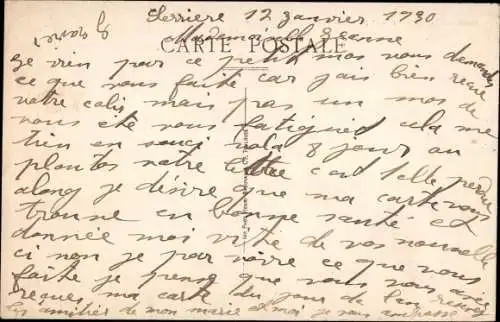 Serriere 12 Janvier 1930
Mademoiselle Jeanne
CARTE POSTALE
je vien par ce petit mos vous demander
ce que vous faite car jais bien reçue
votre colis mais pas un mos de
vous ete vous fatiguée cela me
tien en souci voila 8 jour au
plutos votre lettre c'est elle perdu
alons je désire que ma carte vous
trouve en bonne santé et
donnée moi vite de vos nouvelle
ci non je par voire ce que vous
faite je pense que vous avez
reçues ma carte du jour de l'an recevez
les amitier de mon marie et moi je vous embrasse